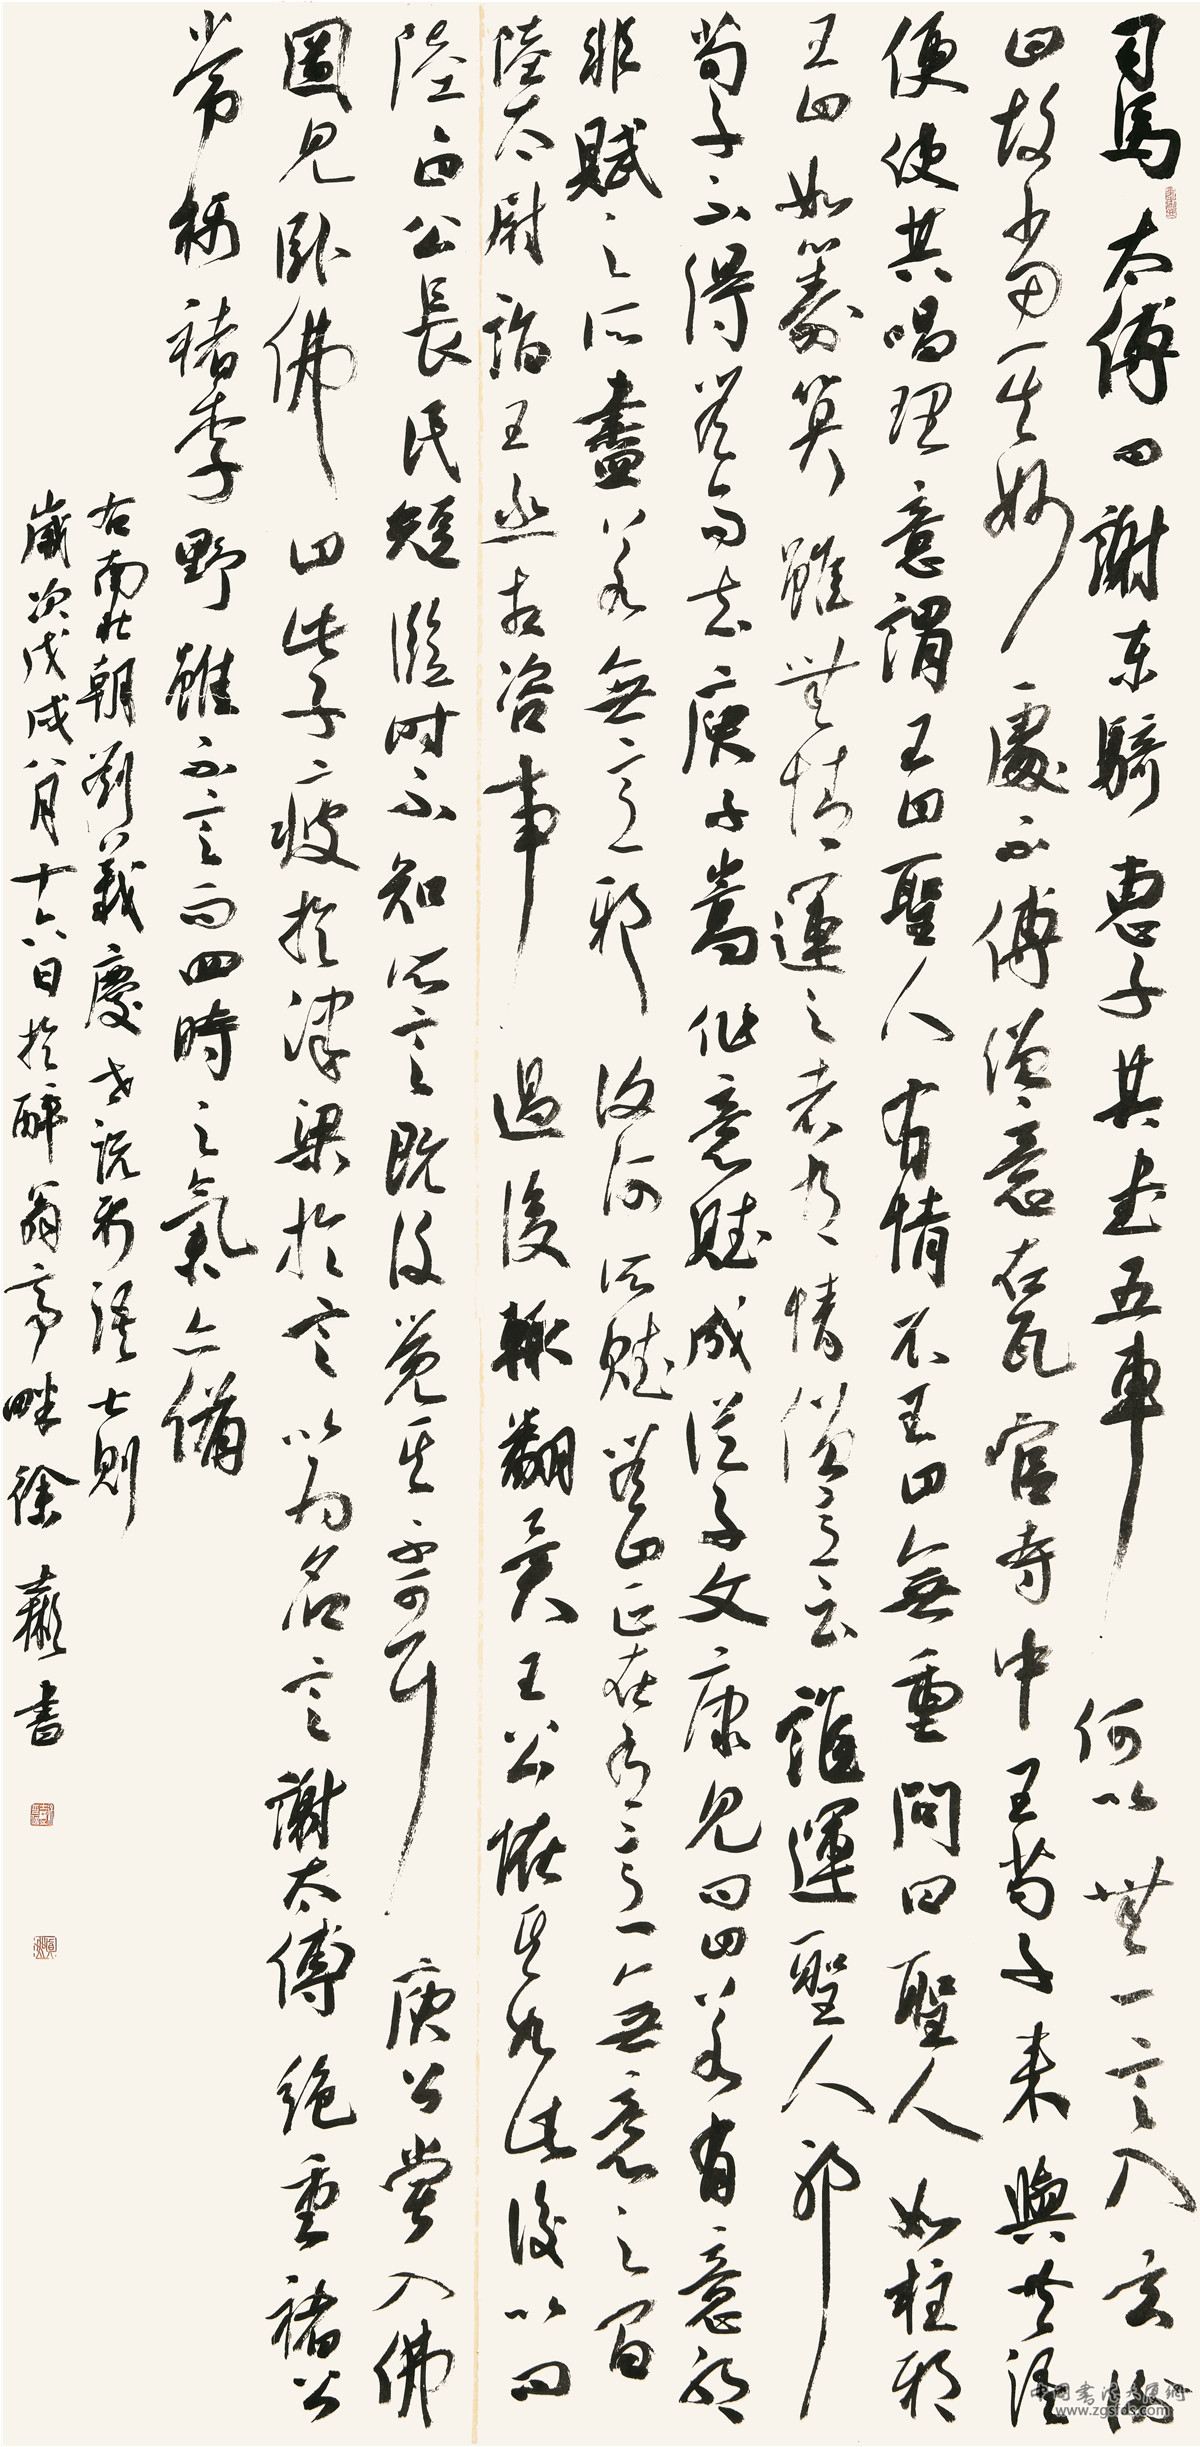 司馬太傅問謝車騎惠子其書五車何以無一言入玄謝
曰故當是其妙處不傳僧意在瓦官寺中王苟子来與共語
便使其唱理意謂王曰聖人有情不王曰無重問曰聖人如柱邪
王曰如籌算雖無情運之者有情僧意云誰運聖人邪
苟子不得答而去庾子嵩作意賦成從子文康見問曰若有意邪
非賦之所盡若無意邪復何所賦答曰正在有意無意之間
陸太尉詣王丞相咨事過後輒翻異王公怪其如此後以問
陸曰公長民短臨時不知所言既後覺其不可耳庾公嘗入佛
圖見臥佛曰此子疲於津梁於時以為名言謝太傅絕重褚公
常稱褚季野雖不言而四時之氣亦備
右南北朝劉義慶世說新語七則
歲次戊戌八月十六日於醉翁亭畔徐燕書
中国书法大厦网
www.zgsfds.com